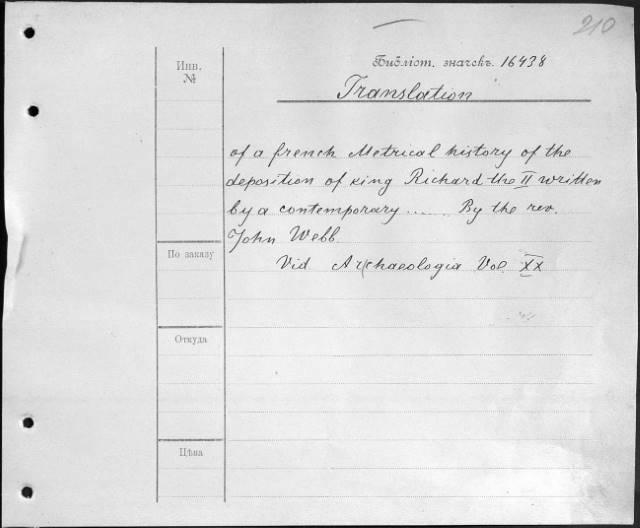 210
Библіот. значекъ. 16438
Инв.
№
Translation
of a french Metrical history of the
deposition of king Richard the II written
by a contemporary ..... By the rev.
John Webb.
По заказу
Vid Archaeologia Vol XX
Откуда
Цѣна